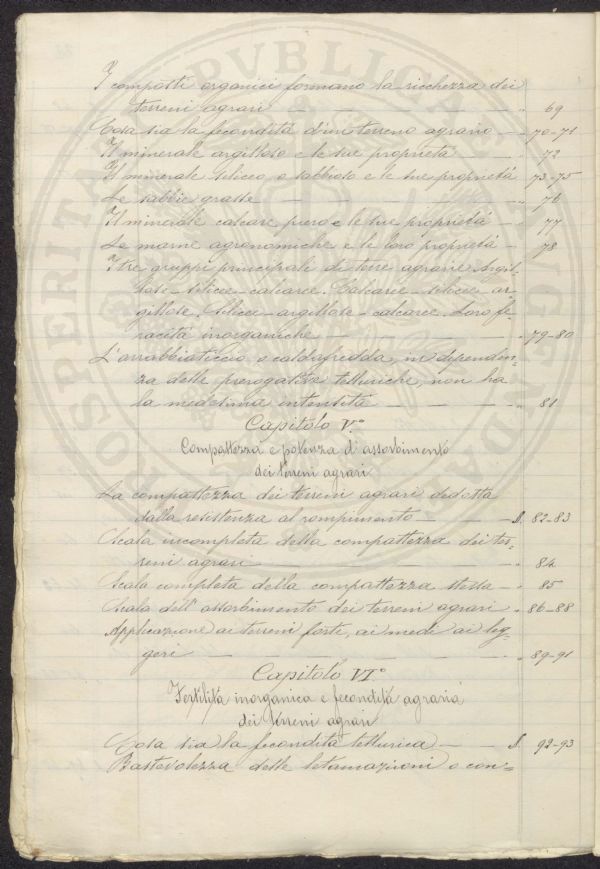 I composti organici formano la ricchezza dei
terreni agrari — — — — „ 69
Cosa sia la fecondità d'un terreno agrario — „ 70-71
Il minerale argilloso e le sue proprietà — „ 72
Il minerale siliceo o sabbioso e le sue proprietà „ 73-75
Le sabbie grasse — — — — „ 76
Il minerale calcare puro e le sue proprietà „ 77
Le marne agronomiche e le loro proprietà — „ 78
I tre gruppi principali di terre agrarie. Argil-
lose - silicee - calcaree. Calcaree - silicee ar-
gillose. Silicee - argillose - calcaree. Loro fe-
racità inorganiche — — — — „ 79-80
L'arrabbiaticcio o caldafredda, in dipenden-
za delle prerogative telluriche, non ha
la medesima intensità — — — „ 81
Capitolo V.°
Compattezza e potenza di assorbimento
dei terreni agrari
La compattezza dei terreni agrari dedotta
dalla resistenza al rompimento — — — §. 82-83
Scala incompleta della compattezza dei ter-
reni agrari — — — — — „ 84
Scala completa della compattezza stessa — „ 85
Scala dell'assorbimento dei terreni agrari „ 86-88
Applicazione ai terreni forti, ai medi ai leg-
geri — — — — — — „ 89-91
Capitolo VI.°
Fertilità inorganica e fecondità agraria
dei terreni agrari
Cosa sia la fecondità tellurica — — §. 92-93
Bastevolezza delle letamazioni o con-
PROSPERITATI PVBLICAE AVGENDAE